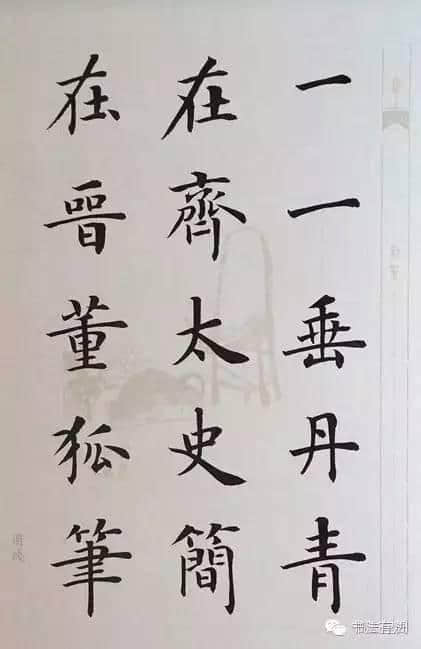 一一垂丹青
在齊太史簡
在晋董狐筆
书法有法